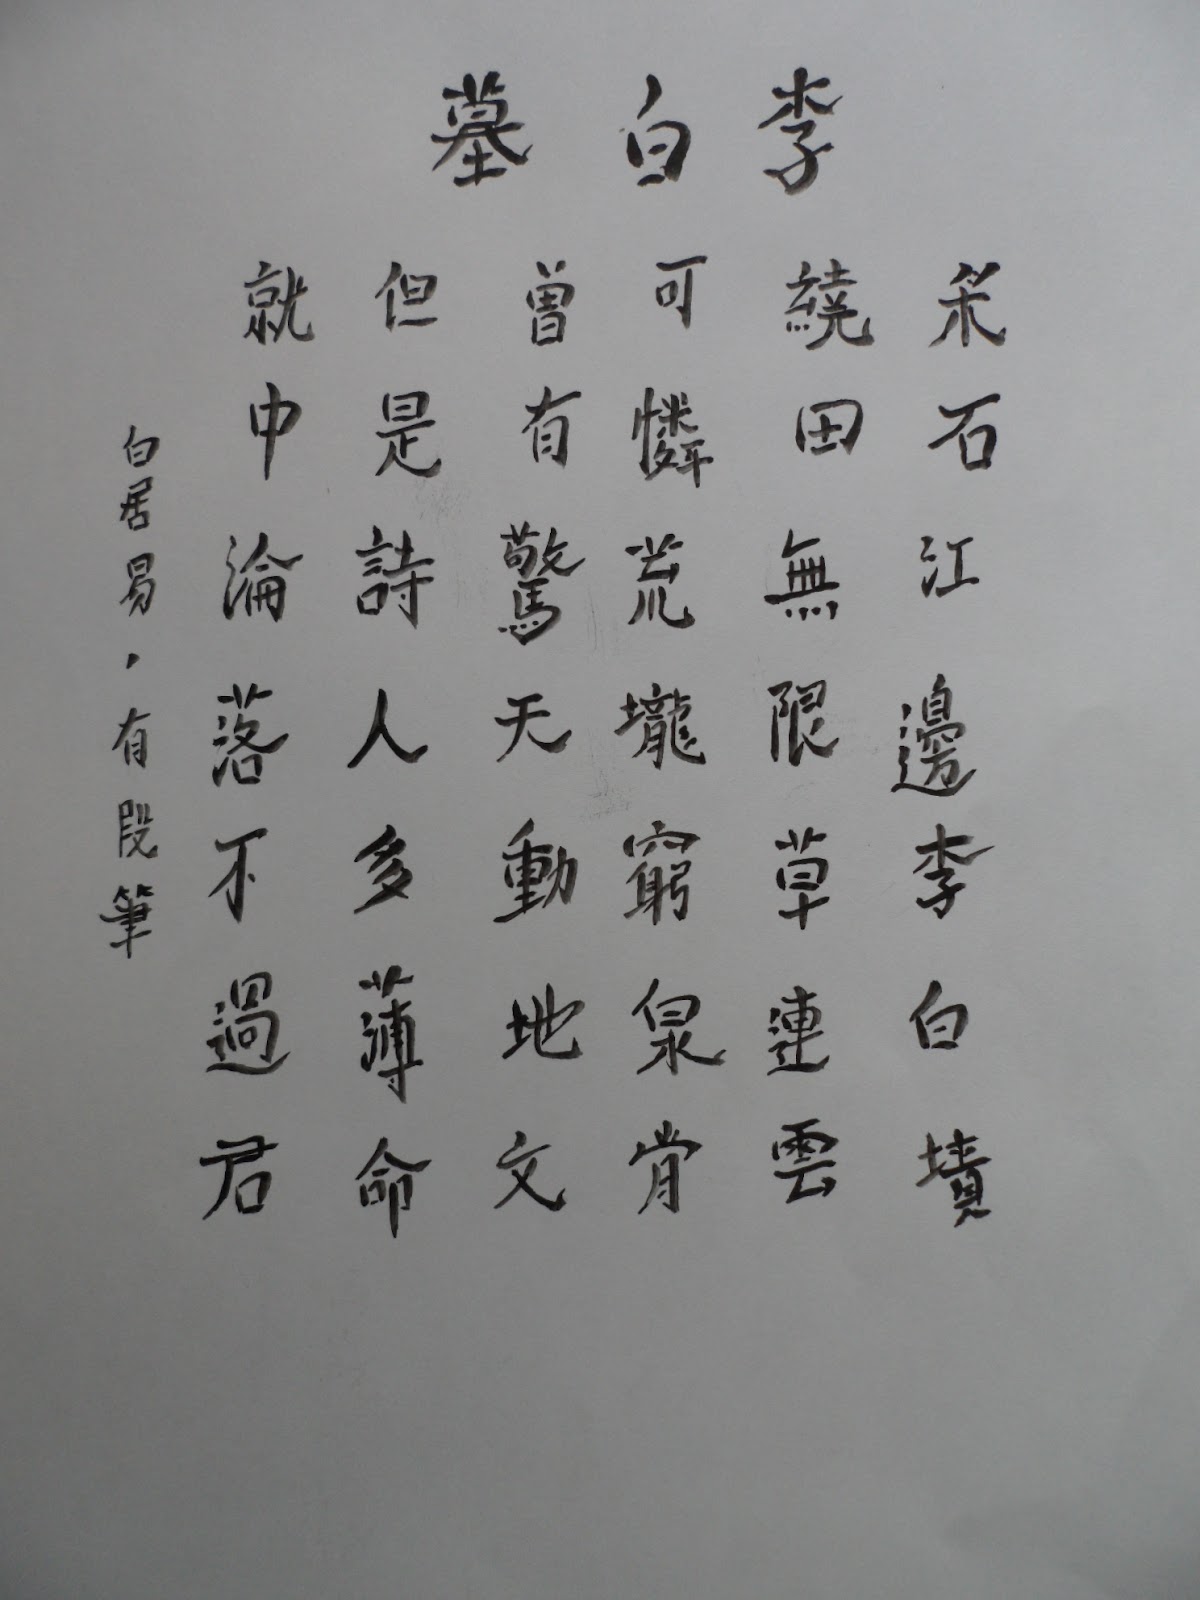 李白墓
采石江邊李白墳
繞田無限草連雲
可憐荒壠窮泉骨
曾有驚天動地文
但是詩人多薄命
就中淪落不過君
白居易,有段筆